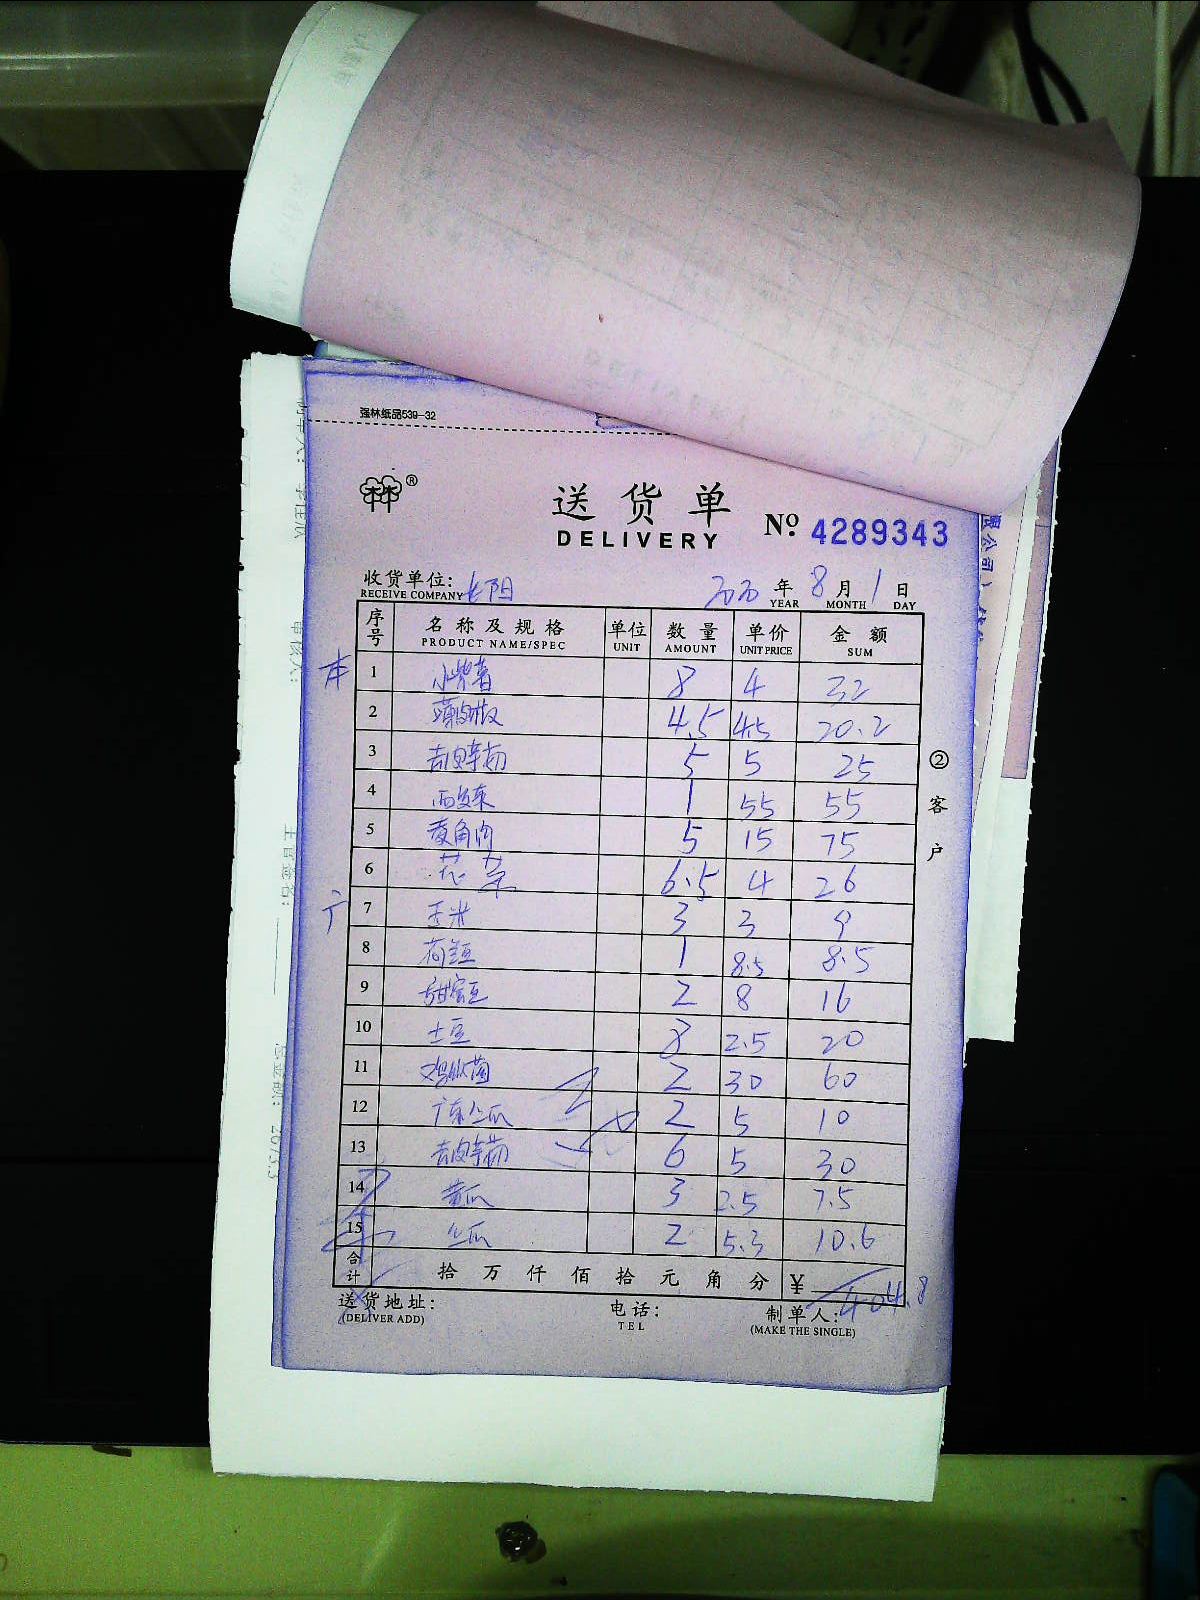 强林纸品539-32
林®
送货单
DELIVERY
№ 4289343
收货单位: 长阳 2020 年 8 月 1 日
RECEIVE COMPANY YEAR MONTH DAY
序号 名称及规格 单位 数量 单价 金额
PRODUCT NAME/SPEC UNIT AMOUNT UNIT PRICE SUM
本 1 小紫薯 8 4 32
2 4.5 4.5 20.2
3 去皮芋艿 5 5 25
4 西生菜 1 55 55
5 菱角肉 5 15 75
6 花菜 6.5 4 26
广 7 玉米 3 3 9
8 荷兰豆 1 8.5 8.5
9 甜蜜豆 2 8 16
10 土豆 8 2.5 20
11 鸡枞菌 2 30 60
12 广东丝瓜 2 5 10
13 去皮芋艿 6 5 30
14 黄瓜 3 2.5 7.5
15 丝瓜 2 5.3 10.6
合计 拾万仟佰拾元角分 ¥ 404.8
送货地址: 电话: 制单人:
(DELIVER ADD) TEL (MAKE THE SINGLE)
②客户
主管签名:
总金额: 2673.3
审核人:
限公司)